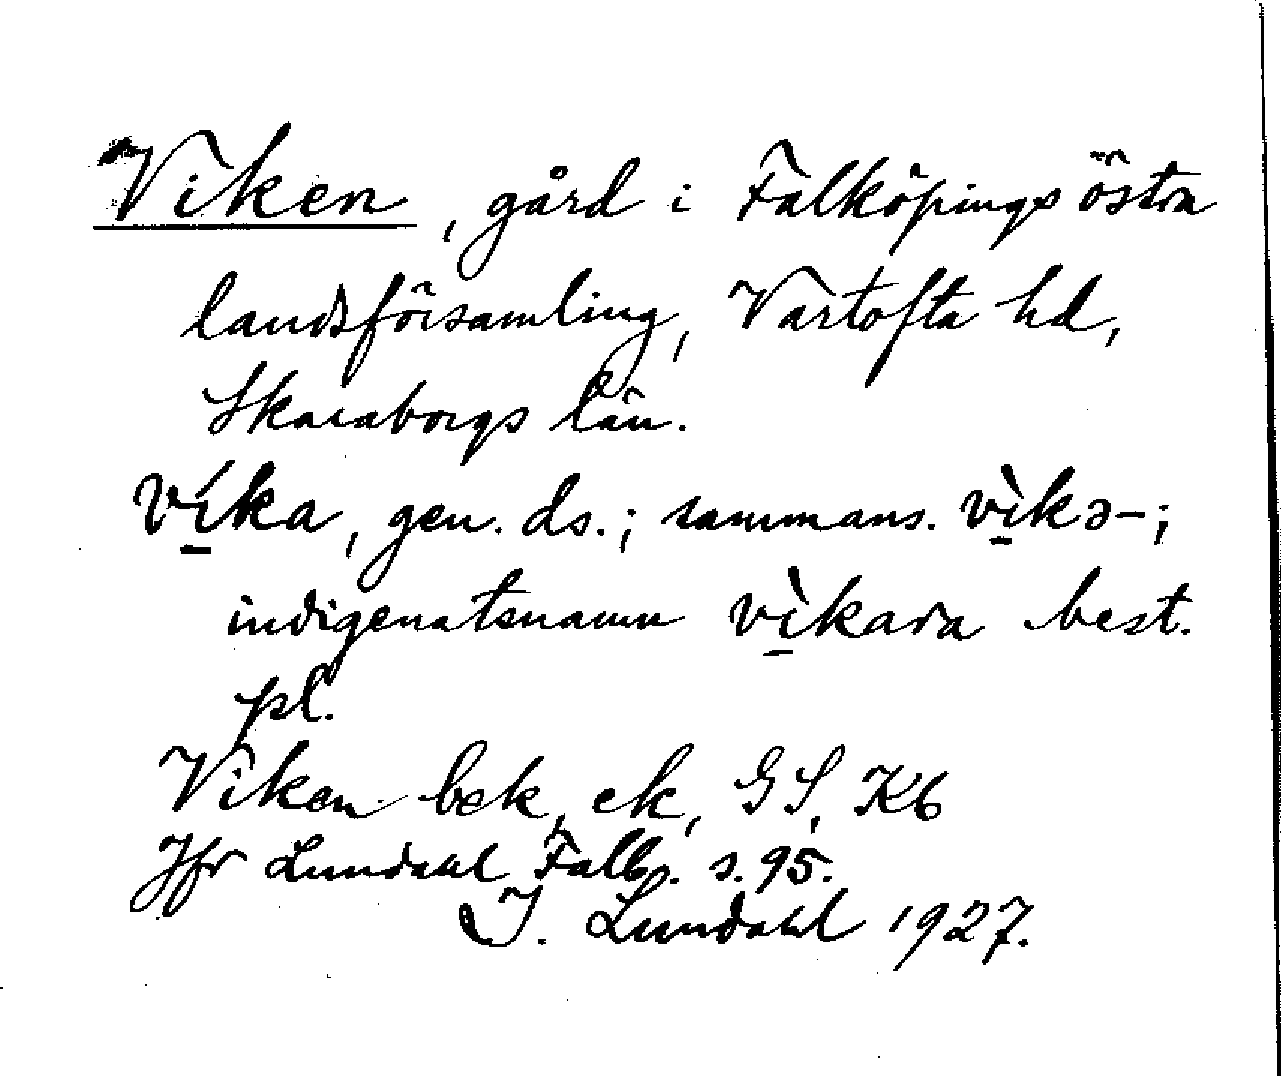 Viken, gård i Falköpings östra
landsförsamling, Vartofta hd,
Skaraborgs län.
ví̱ka, gen. ds.; sammans. vì̱kə-;
indigenatsnamn vì̱kara best.
pl.
Viken bek, ek, GS, Kb
Jfr Lundahl Falb. s. 95.
I. Lundahl 1927.